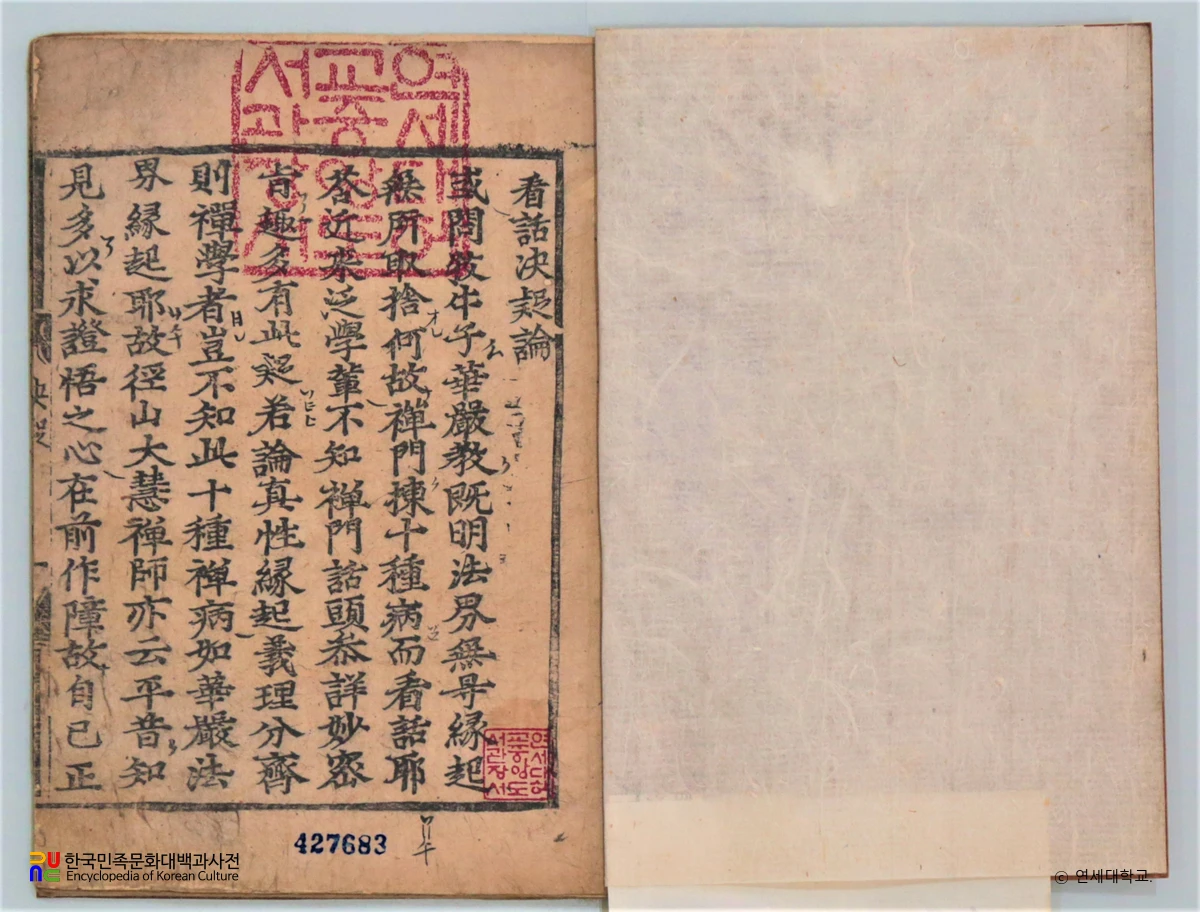 看話决疑論
或問牧牛子華嚴教既明法界無㝵縁起
無所取捨何故禪門揀十種病而看話耶
荅近来泛學輩不知禅門話頭叅詳妙密
旨趣多有此疑若論真性縁起義理分齊
則禪學者豈不知此十種禅病如華嚴法
界縁起耶故徑山大慧禅師亦云平昔知
見多以求證悟之心在前作障故自己正
연세대학
교중앙도
서관장서
연세대학
교중앙도
서관장서
427683
한국민족문화대백과사전
Encyclopedia of Korean Culture
© 연세대학교.